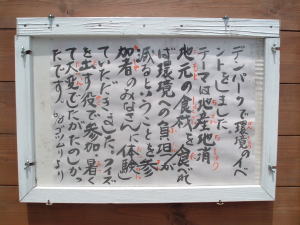 デンパークで環境のイベ
ントをしました。
テーマは地産地消
地元の食材を食べれ
ば環境への負担が
減るということを参
加者のみなさんに体験し
ていただきました。クイズ
を出す役で参加。暑く
て大変でしたがたのしかっ
たです。